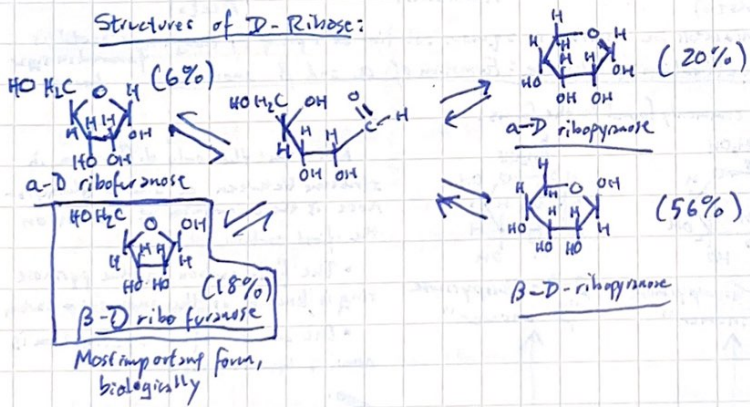 Structures of D-Ribose:
HO H₂C O H (6%)
H H H OH
HO OH
α-D ribofuranose
HO H₂C OH O
C-H
H H H
OH OH
H
H O H (20%)
H H H
HO OH
OH OH
α-D ribopyranose
HO H₂C O OH
H H H H
HO HO (18%)
β-D ribofuranose
Most important form,
biologically
H
H O OH (56%)
H H
HO H
HO HO
β-D-ribopyranose